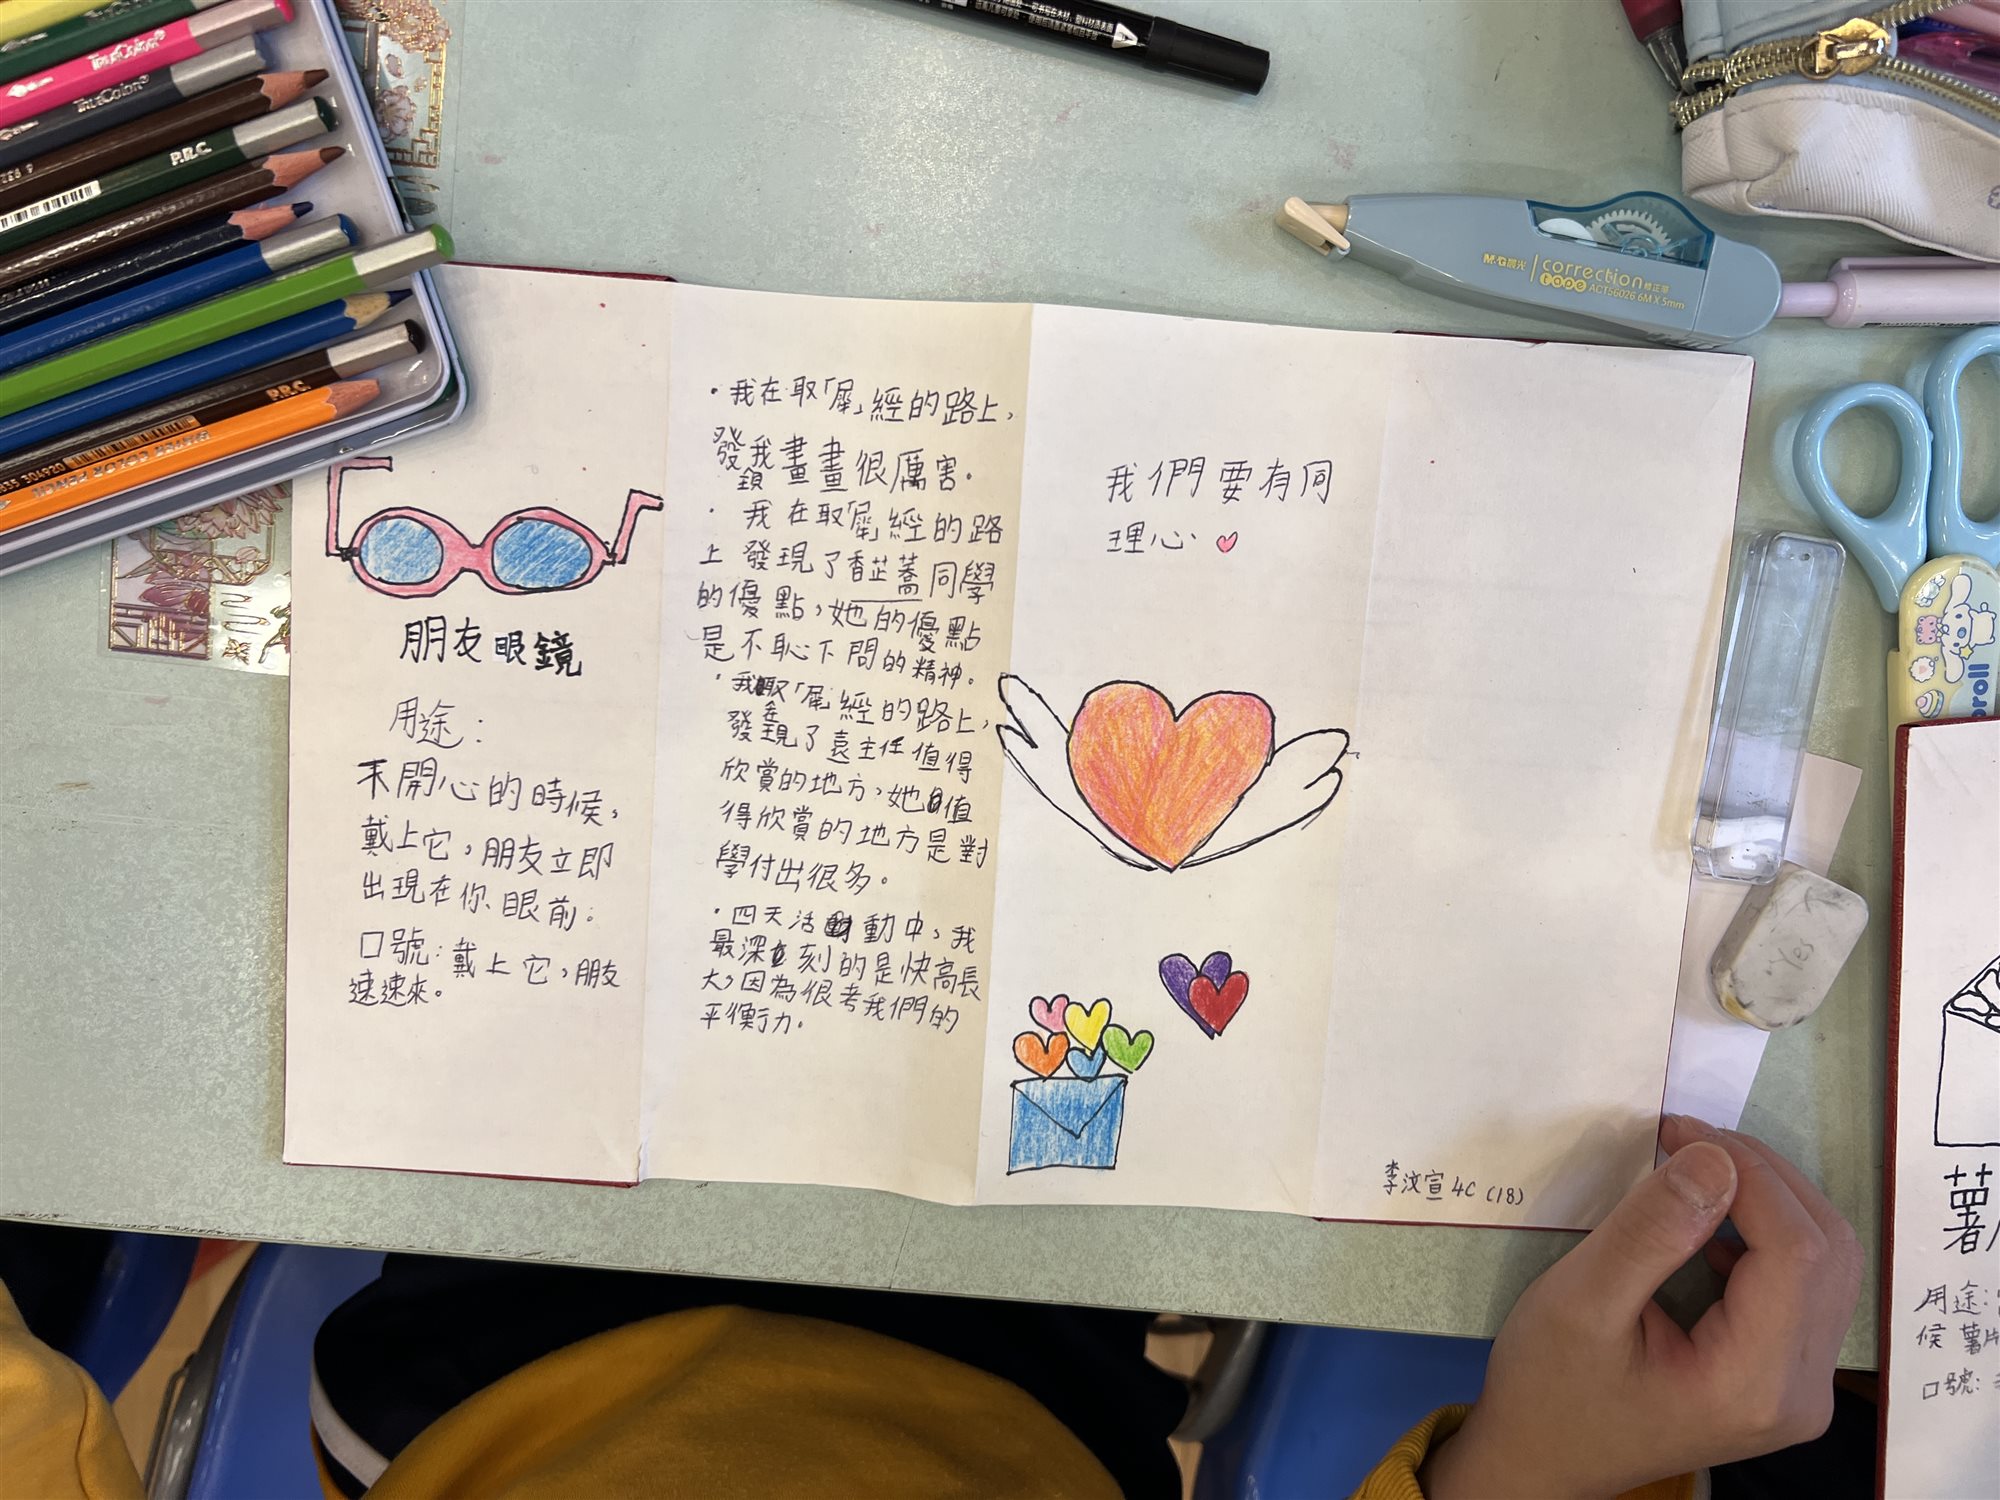 TrueColor
P.R.C.
P.R.C.
306920
M&G晨光
correction
tape
修正带
ACT56026 6M X 5mm
朋友眼鏡
用途：
不開心的時候，
戴上它，朋友立即
出現在你眼前。
口號：戴上它，朋友
速速來。
·我在取「犀」經的路上，
發我畫畫很厲害。
· 我在取「犀」經的路
上發現了香芷蕎同學
的優點，她的優點
是不恥下問的精神。
·我取「犀」經的路上，
發現了袁主任值得
欣賞的地方，她值
得欣賞的地方是對
學付出很多。
·四天活動中，我
最深刻的是快高長
大，因為很考我們的
平衡力。
我們要有同
理心
李汶宣 4C (18)
薯
用途：
候薯片
口號：